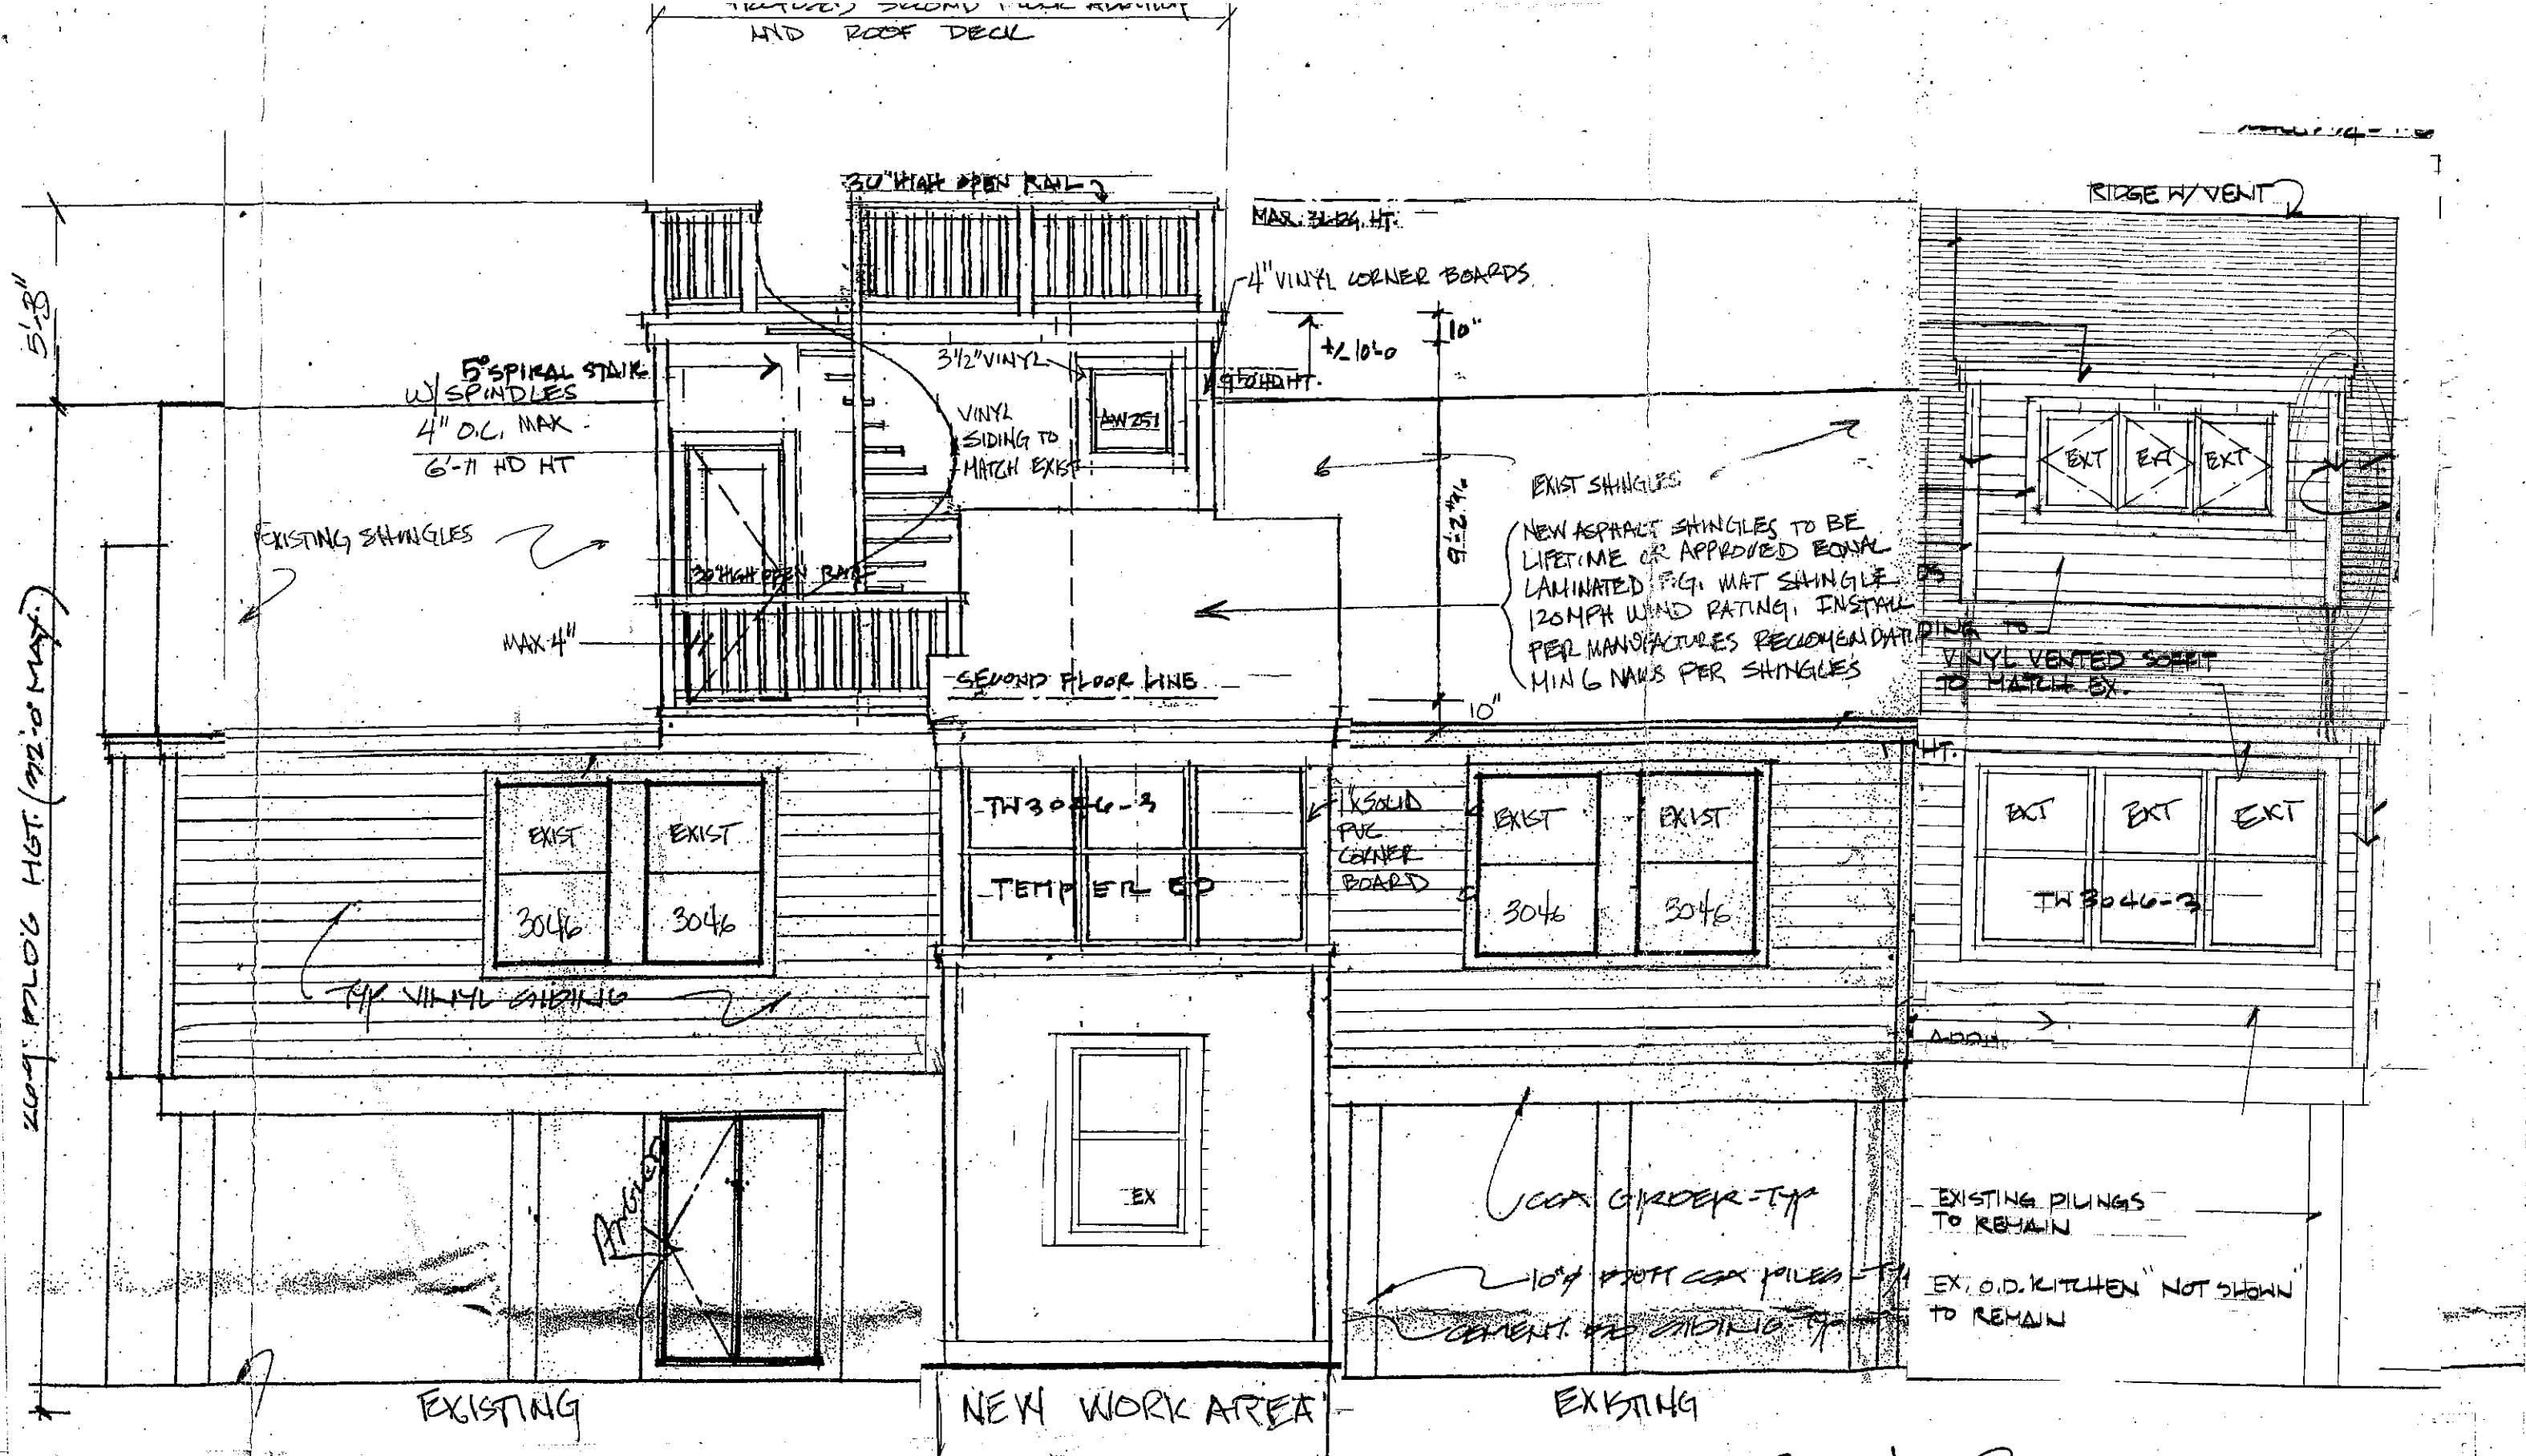 SECOND FLOOR
AND ROOF DECK
RIDGE W/VENT
30" HIGH OPEN RAIL
MAX. BLDG. HT.
4" VINYL CORNER BOARDS
10"
+/- 10'-0
5'-3"
3 1/2" VINYL
5° SPIRAL STAIR
W/ SPINDLES
4" O.C. MAX
6'-11 HD HT
HD HT.
AW251
VINYL
SIDING TO
MATCH EXIST
EXT EXT EXT
EXIST SHINGLES
EXISTING SHINGLES
NEW ASPHALT SHINGLES TO BE
LIFETIME OR APPROVED EQUAL
LAMINATED F.G. MAT SHINGLE
120MPH WIND RATING, INSTALL
PER MANUFACTURES
MIN 6 NAILS PER SHINGLES
30" HIGH OPEN RAIL
MAX 4"
SECOND FLOOR LINE
DING TO
VINYL VENTED SOFFIT
TO MATCH EX.
10"
HT.
HGT. (32'-0" MAX.)
EXIST EXIST
3046 3046
TW3046-3
TEMPERED
1X SOLID
PVC
CORNER
BOARD
EXIST EXIST
3046 3046
EXT EXT EXT
TW3046-3
TYP VINYL SIDING
EX
CCA GIRDER-TYP
EXISTING PILINGS
TO REMAIN
EX. O.D. KITCHEN "NOT SHOWN"
TO REMAIN
10"ø BUTT CCA PILES-TYP
CEMENT BD SIDING TYP
EXISTING
NEW WORK AREA
EXISTING